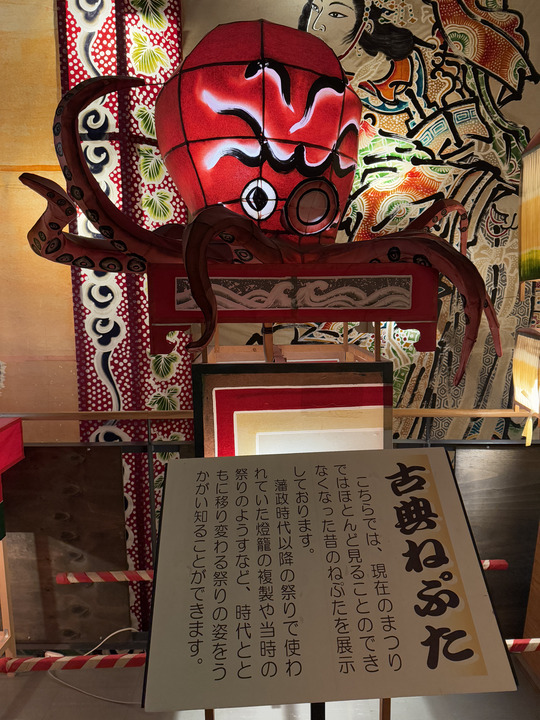 古典ねぷた
こちらでは、現在のまつり
ではほとんど見ることのでき
なくなった昔のねぷたを展示
しております。
藩政時代以降の祭りで使わ
れていた燈籠の複製や当時の
祭りのようすなど、時代とと
もに移り変わる祭りの姿をう
かがい知ることができます。